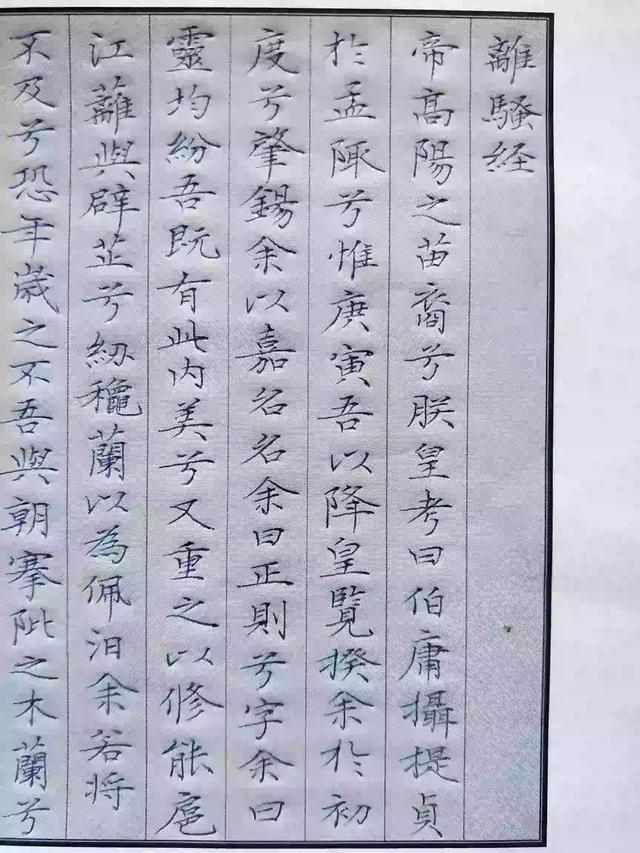 離騷経
帝高陽之苗裔兮朕皇考曰伯庸攝提貞
於孟陬兮惟庚寅吾以降皇覽揆余於初
度兮肇錫余以嘉名名余曰正則兮字余曰
靈均紛吾既有此內美兮又重之以修能扈
江蘺與辟芷兮紉穐蘭以為佩汨余若將
不及兮恐年歲之不吾與朝搴阰之木蘭兮